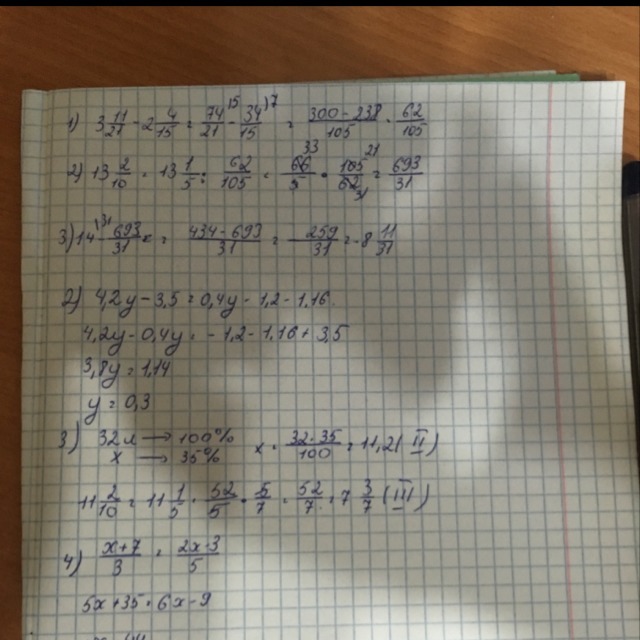 1) 3 11/21 - 2 4/15 = 74/21 ^15 - 34/15 ^17 = 300-238/105 = 62/105
2) 13 2/10 = 13 1/5 : 62/105 = 66/5 ^33 · 105/62 ^21 31 = 693/31
3) 14 ^31 - 693/31 = 434-693/31 = - 259/31 = -8 11/31
2) 4,2y-3,5=0,4y-1,2-1,16
4,2y-0,4y=-1,2-1,16+3,5
3,8y=1,14
y=0,3
3) 32 л → 100% x = 32·35/100 = 11,2 (II)
x → 35%
11 2/10 = 11 1/5 · 52/5 · 5/7 = 52/7 = 7 3/7 (III)
4) x+7/3 = 2x-3/5
5x+35=6x-9